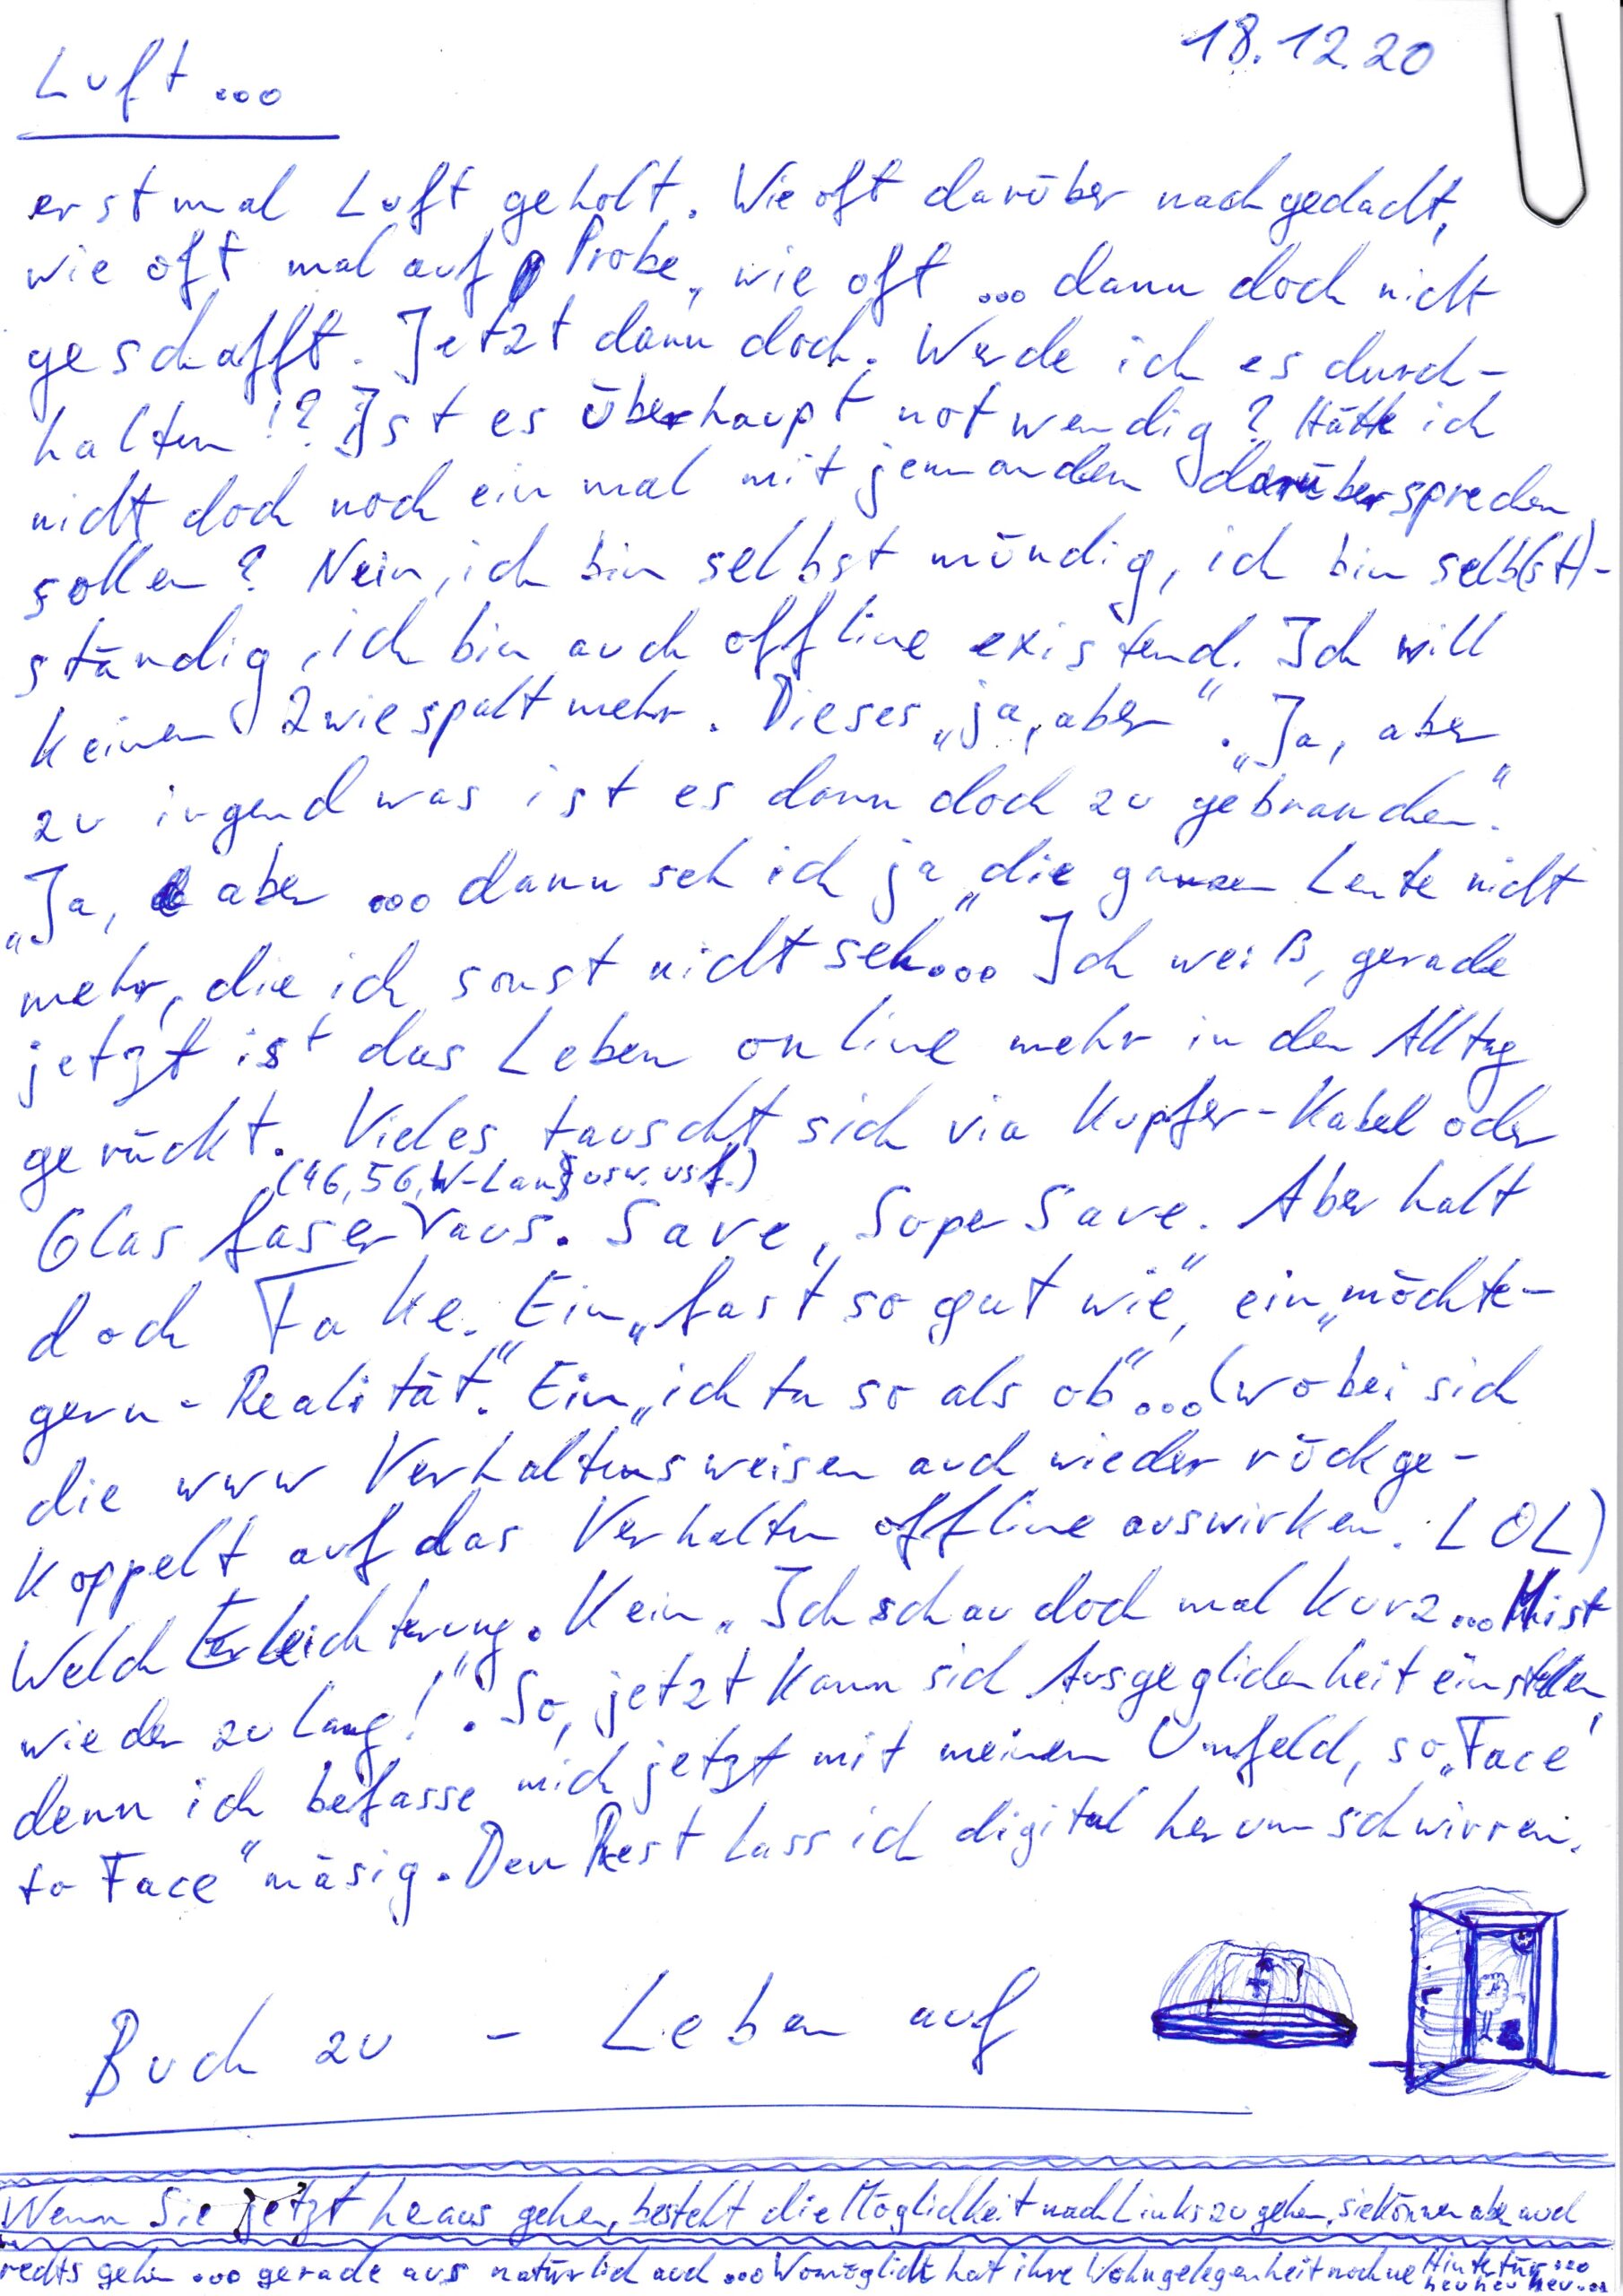 18.12.20
Luft ...
erst mal Luft geholt. Wie oft darüber nachgedacht,
wie oft mal auf Probe, wie oft ... dann doch nicht
geschafft. Jetzt dann doch. Werde ich es durch-
halten!? Ist es überhaupt notwendig? Hätte ich
nicht doch noch ein mal mit jemanden darüber sprechen
sollen? Nein, ich bin selbst mündig, ich bin selb(st)-
ständig, ich bin auch offline existend. Ich will
keinen Zwiespalt mehr. Dieses „ja, aber“. „Ja, aber
zu irgend was ist es dann doch zu gebrauchen“.
„Ja, aber ... dann seh ich ja „die ganzen Leute nicht
mehr, die ich sonst nicht seh... Ich weiß, gerade
jetzt ist das Leben online mehr in den Alltag
gerückt. Vieles tauscht sich via Kupfer-Kabel oder
(4G, 5G, W-Lan usw. usf.)
Glas faser aus. Save, Super Save. Aber halt
doch Fake. Ein „fast so gut wie“, ein „möchte-
gern-Realität“. Ein „ich tu so als ob“... (wobei sich
die www Verhaltensweisen auch wieder rückge-
koppelt auf das Verhalten offline auswirken. LOL)
Welch Erleichterung. Kein „Ich schau doch mal kurz... Mist
wieder zu lang!“. So, jetzt kann sich Ausgeglichenheit einstellen,
denn ich befasse mich jetzt mit meinem Umfeld, so „Face
to Face“ mäsig. Den Rest lass ich digital herum schwirren.
Buch zu - Leben auf
Wenn Sie jetzt heraus gehen, besteht die Möglichkeit nach Links zu gehen, sie können aber auch
rechts gehen ... gerade aus natürlich auch ... Womöglich hat ihre Wohngelegenheit noch ne Hintertür ...
heu heu heu ...